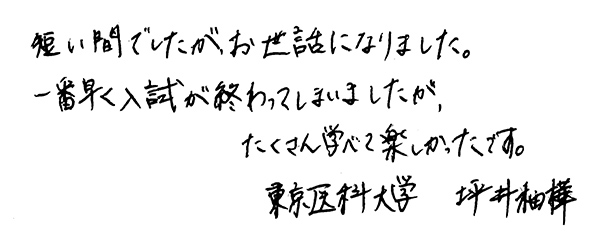 短い間でしたが、お世話になりました。
一番早く入試が終わってしまいましたが、
たくさん学べて楽しかったです。
東京医科大学 坪井柚樺